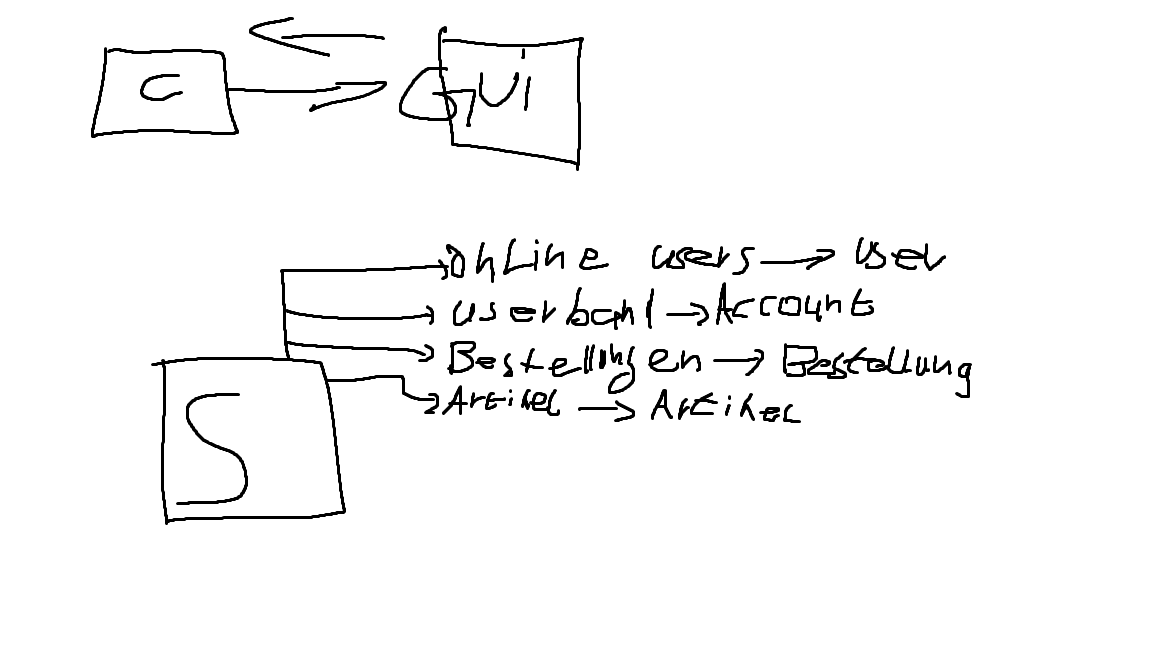 C
GUi
OnLine users → User
userbank → Account
Bestellungen → Bestellung
Artikel → Artikel
S